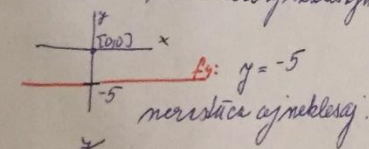 y
[0,0]
x
f4: y = -5
-5
nerastúca aj neklesaj.
y